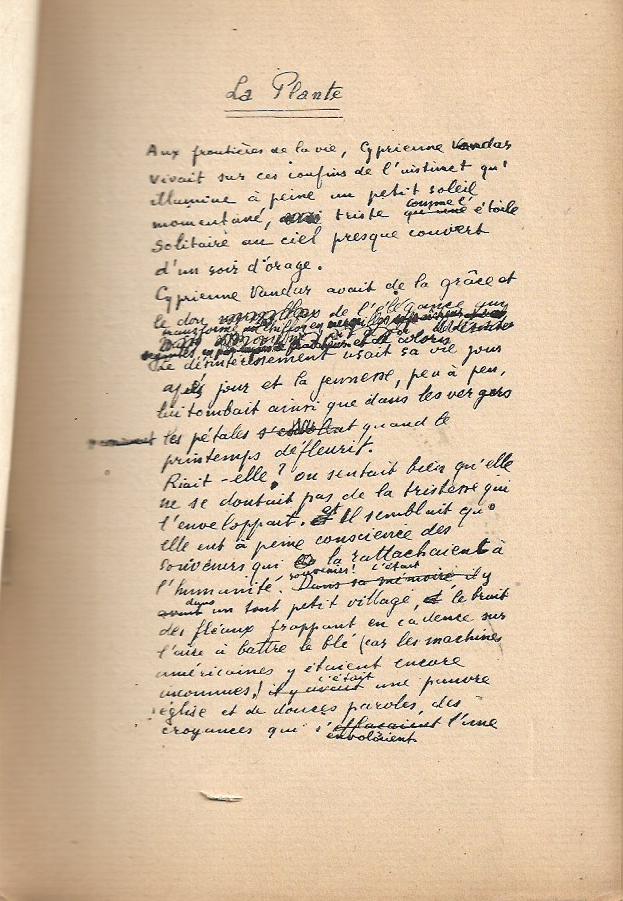 La Plante
Aux frontières de la vie, Cyprienne Vandar
vivait sur ces confins de l'instinct qu'
illumine à peine un petit soleil
momentané, triste comme l' étoile
solitaire au ciel presque couvert
d'un soir d'orage.
Cyprienne Vandar avait de la grâce et
le don de l'élégance
Le désintéressement usait sa vie jour
après jour et la jeunesse, peu à peu,
lui tombait ainsi que dans les vergers
les pétales quand le
printemps défleurit.
Riait-elle? on sentait bien qu'elle
ne se doutait pas de la tristesse qui
l'enveloppait. et Il semblait qu'
elle eut à peine conscience des
souvenirs qui la rattachaient à
souvenirs! c'était
l'humanité. Dans sa mémoire il y
dans
avait un tout petit village, le bruit
des fléaux frappant en cadence sur
l'aire à battre le blé (car les machines
américaines y étaient encore
c'était
inconnues) il y avait une pauvre
église et de douces paroles, des
croyances qui s'effaçaient l'une
envolaient